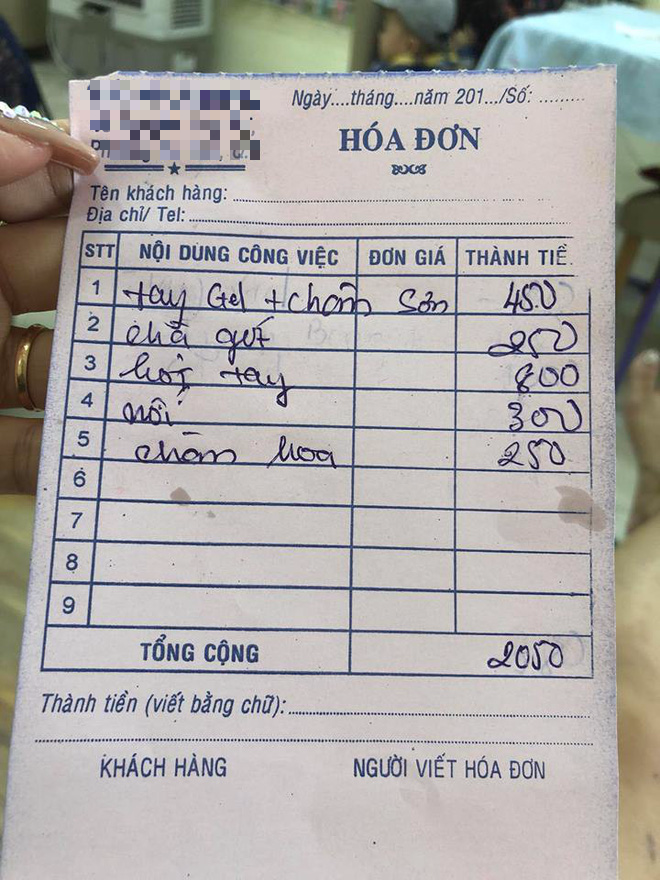 Ngày....tháng....năm 201.../Số: .........
HÓA ĐƠN
Tên khách hàng:
Địa chỉ/ Tel:
STT NỘI DUNG CÔNG VIỆC ĐƠN GIÁ THÀNH TIỀ
1 tay Gel + chấm Sơn 450
2 chà gót 250
3 tay 800
4 nối 300
5 chấm hoa 250
6
7
8
9
TỔNG CỘNG 2050
Thành tiền (viết bằng chữ):
KHÁCH HÀNG NGƯỜI VIẾT HÓA ĐƠN